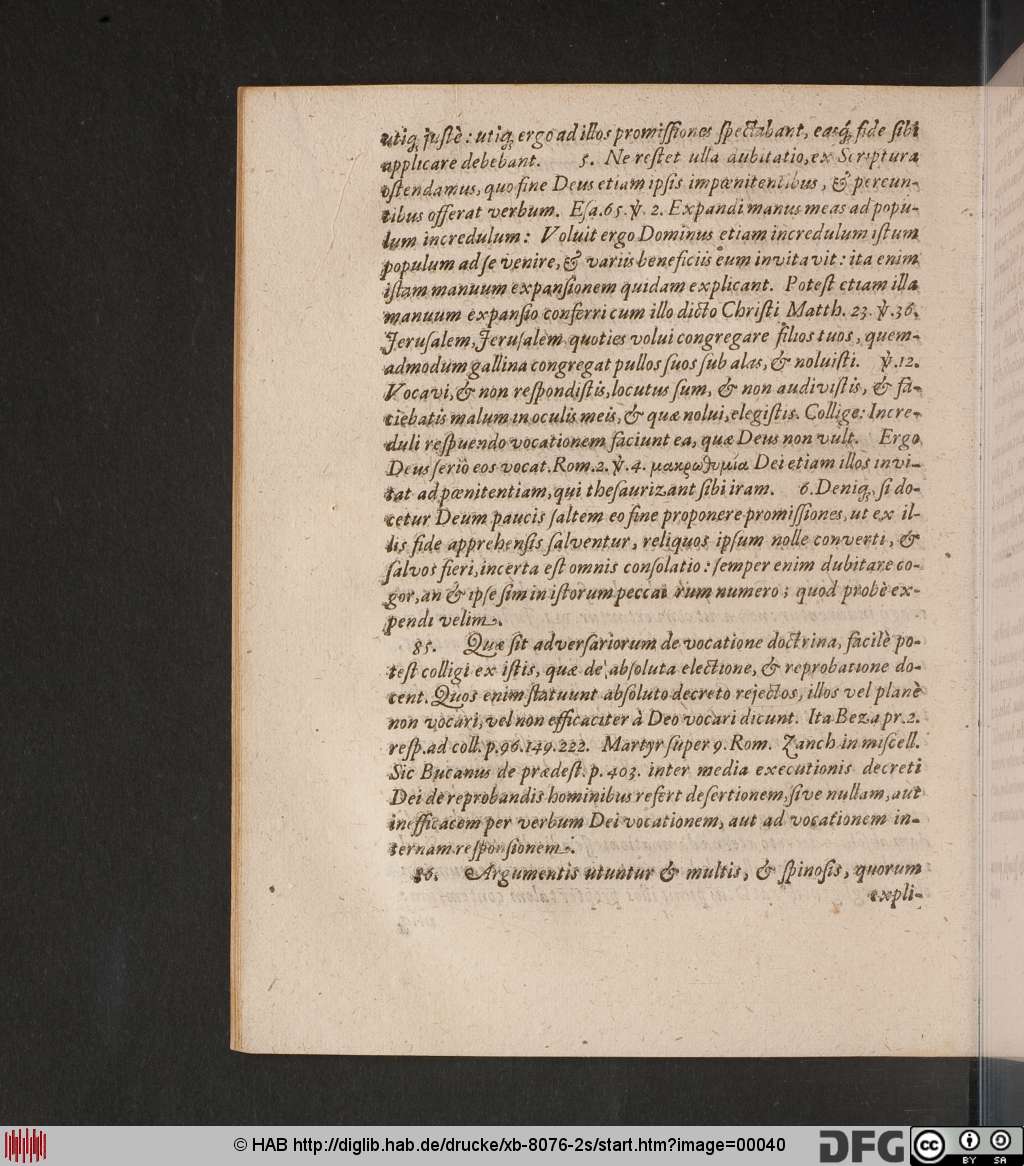 utiq; justè: utiq; ergo ad illos promiſſiones ſpectabant, easq́; fide ſibi
applicare debebant. 5. Ne reſtet ulla dubitatio, ex Scriptura
oſtendamus, quo fine Deus etiam ipſis impœnitentibus, & pereun-
tibus offerat verbum. Eſa. 65. ꝟ. 2. Expandi manus meas ad popu-
lum incredulum: Voluit ergo Dominus etiam incredulum iſtum
populum ad ſe venire, & variis beneficiis eum invitavit: ita enim
iſtam manuum expanſionem quidam explicant. Poteſt etiam illa
manuum expanſio conferri cum illo dicto Chriſti Matth. 23. ꝟ. 36.
Jeruſalem, Jeruſalem quoties volui congregare filios tuos, quem-
admodum gallina congregat pullos ſuos ſub alas, & noluiſti. ꝟ. 12.
Vocavi, & non reſpondiſtis, locutus ſum, & non audiviſtis, & fa-
ciebatis malum in oculis meis, & quæ nolui, elegiſtis. Collige: Incre-
duli reſpuendo vocationem faciunt ea, quæ Deus non vult. Ergo
Deus ſeriò eos vocat. Rom. 2. ꝟ. 4. μακρωθυμία Dei etiam illos invi-
tat ad pœnitentiam, qui theſaurizant ſibi iram. 6. Deniq; ſi do-
cetur Deum paucis ſaltem eo fine proponere promiſſiones, ut ex il-
lis fide apprehenſis ſalventur, reliquos ipſum nolle converti, &
ſalvos fieri, incerta eſt omnis conſolatio: ſemper enim dubitare co-
gor, an & ipſe ſim in iſtorum peccatorum numero; quod probè ex-
pendi velim.
85. Quæ ſit adverſariorum de vocatione doctrina, facilè po-
teſt colligi ex iſtis, quæ de abſoluta electione, & reprobatione do-
cent. Quos enim ſtatuunt abſoluto decreto rejectos, illos vel planè
non vocari, vel non efficaciter à Deo vocari dicunt. Ita Beza pr. 2.
reſp. ad coll. p. 96. 149. 222. Martyr ſuper 9. Rom. Zanch in miſcell.
Sic Bucanus de prædeſt. p. 403. inter media executionis decreti
Dei de reprobandis hominibus refert deſertionem, ſive nullam, aut
inefficacem per verbum Dei vocationem, aut ad vocationem in-
ternam reſponſionem.
86. Argumentis utuntur & multis, & ſpinoſis, quorum
expli-
© HAB http://diglib.hab.de/drucke/xb-8076-2s/start.htm?image=00040
DFG
cc BY SA